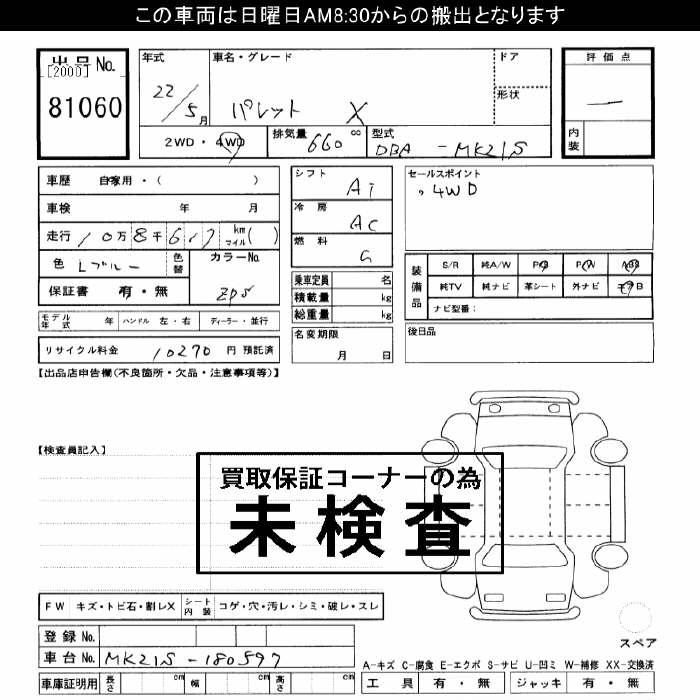 この車両は日曜日AM8:30からの搬出となります
出品No.
[2000]
81060
年式
22/5月
車名・グレード
パレット X
ドア
形状
評価点
―
内装
2WD・4WD
排気量
660 cc
型式
DBA-MK21S
車歴 自家用・( )
車検 年 月
走行 10万8千617 km マイル( )
色 Lブルー
色替
カラーNo.
ZPS
保証書 有・無
モデル年式 年 ハンドル 左・右 ディーラー・並行
リサイクル料金 10270 円 預託済
シフト
AT
冷房
AC
燃料
G
乗車定員 名
積載量 kg
総重量 kg
名変期限
月 日
セールスポイント
4WD
装備品
S/R 純A/W P/S P/W ABS
純TV 純ナビ 革シート 外ナビ エアB
ナビ型番:
後日品
【出品店申告欄(不良箇所・欠品・注意事項等)】
【検査員記入】
買取保証コーナーの為
未検査
FW キズ・トビ石・割レX シート内装 コゲ・穴・汚レ・シミ・破レ・スレ
登録No.
車台No. MK21S-180597
車庫証明用 長さ cm 幅 cm 高さ cm
スペア
A-キズ C-腐食 E-エクボ S-サビ U-凹ミ W-補修 XX-交換済
工具 有・無 ジャッキ 有・無